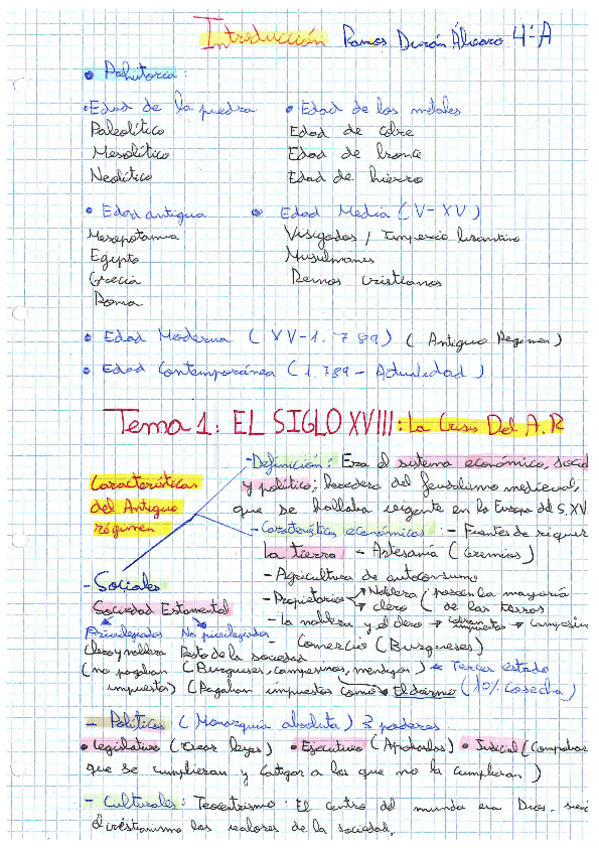 Introducción Ramos Durán Álvaro 4ºA
• Prehistoria:
• Edad de la piedra • Edad de los metales
Paleolítico Edad de cobre
Mesolítico Edad de bronce
Neolítico Edad de hierro
• Edad antigua • Edad Media (V-XV)
Mesopotamia Visigodos / Imperio bisantino
Egipto Musulmanes
Grecia Reinos cristianos
Roma
• Edad Moderna (XV-1.789) (Antiguo Regimen)
• Edad Contemporánea (1.789 - Actualidad)
Tema 1: EL SIGLO XVIII: La Crisis Del A.R
- Definición: Era el sistema económico, social
y político; heredero del feudalismo medieval,
que se hallaba vigente en la Europa del S.XV
Características
del Antiguo
régimen
- Características económicas: - Fuentes de riquez
la tierra - Artesanía (Gremios)
- Agricultura de autoconsumo
- Propietarios → Nobleza (poseen la mayoría
→ clero (de las tierras
- La nobleza y el clero → cobran impuestos → campesin
- Comercio (Burgueses)
- Sociales
Sociedad Estamental
Privilegiados No privilegiados
Clero y nobleza Resto de la sociedad
(no pagaban (Burgueses, campesinos, mendigos) Tercer estado
impuestos) (Pagaban impuestos como → El diezmo (10% Cosecha)
- Políticas (Monarquía absoluta) 3 poderes
• Legislativo (crear leyes) • Ejecutivo (Aprobarlas) • Judicial (Comprobar
que se cumplieran y castigar a los que no la cumplieran)
- Culturales: Teocentrismo: El centro del mundo era Dios,
el cristianismo los valores de la sociedad.